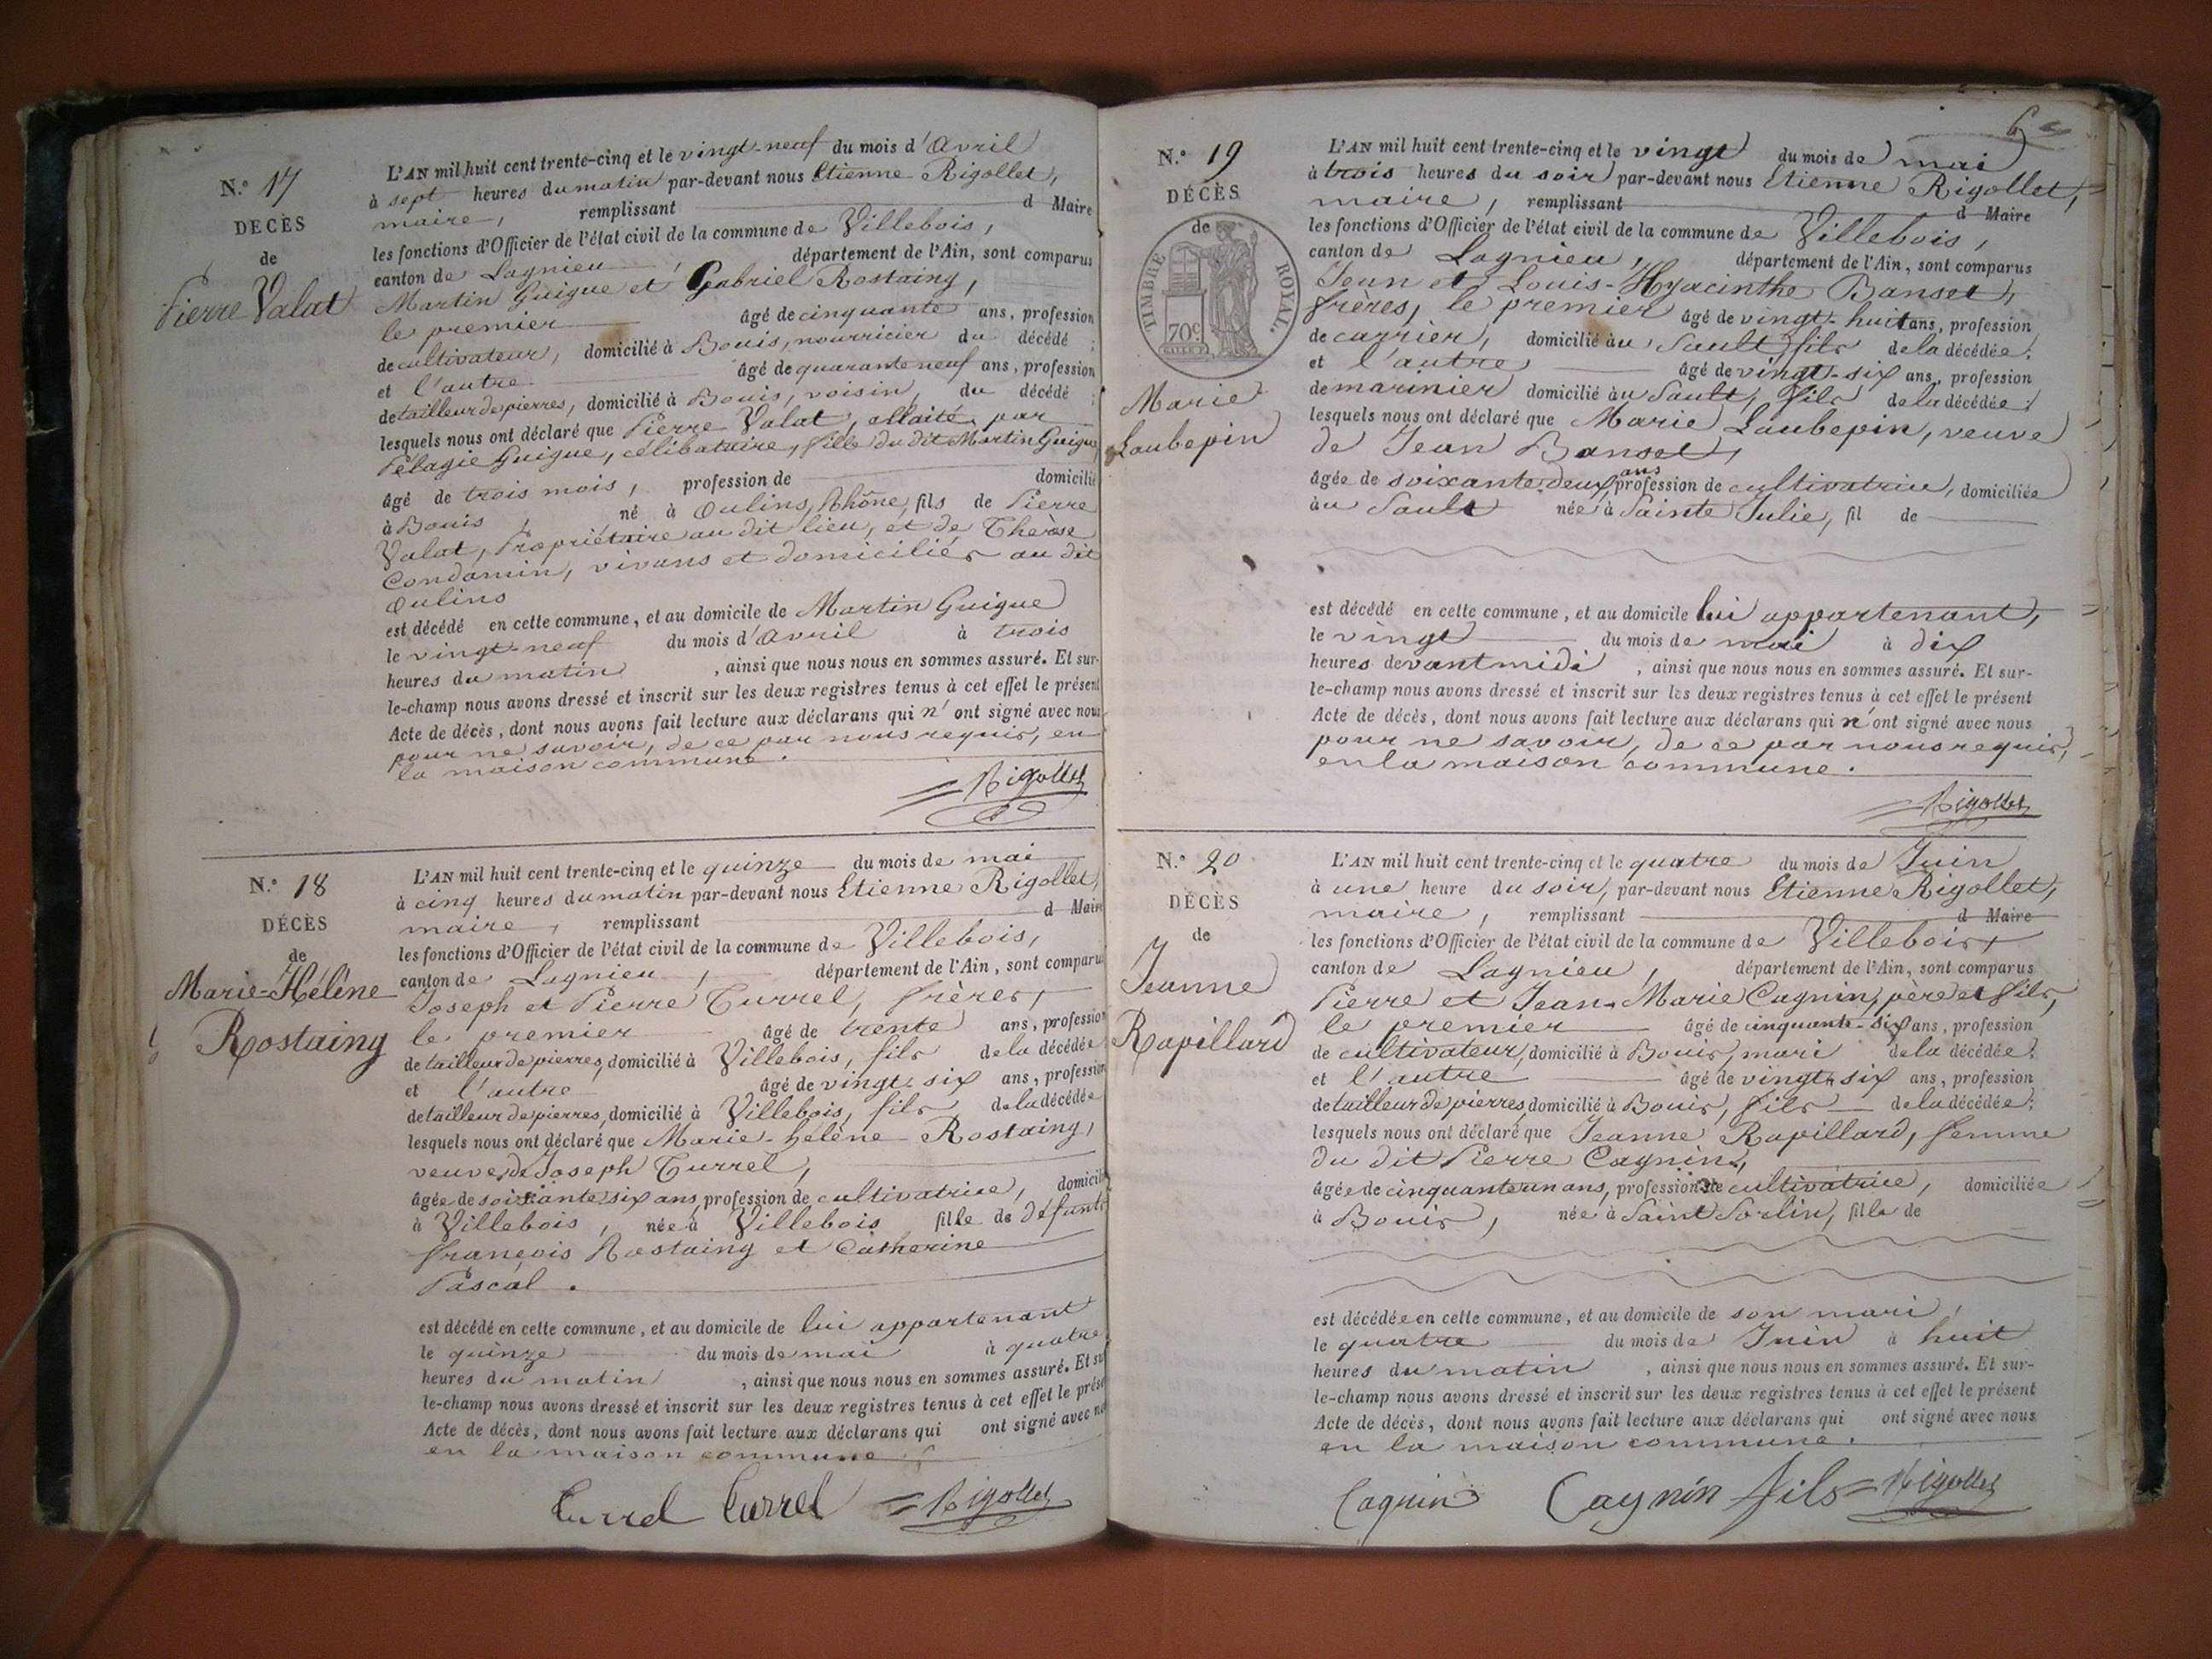 N.º 17
DÉCÈS
de
Pierre Valat
L'AN mil huit cent trente-cinq et le vingt-neuf du mois d'Avril
à sept heures du matin par-devant nous Etienne Rigollet,
maire, remplissant d Maire
les fonctions d'Officier de l'état civil de la commune de Villebois,
canton de Lagnieu, département de l'Ain, sont comparus
Martin Guigue et Gabriel Rostaing,
le premier âgé de cinquante ans, profession
de cultivateur, domicilié à Bouis, nourricier du décédé ;
et l'autre âgé de quarante neuf ans, profession
de tailleur de pierres, domicilié à Bouis, voisin du décédé ;
lesquels nous ont déclaré que Pierre Valat, allaité par
Pélagie Guigue, célibataire, fille du dit Martin Guigue,
âgé de trois mois, profession de domicilié
à Bouis, né à Oulins, Rhône, fils de Pierre
Valat, Propriétaire au dit lieu, et de Therèse
Condamin, vivans et domiciliés au dit
Oulins
est décédé en cette commune, et au domicile de Martin Guigue
le vingt-neuf du mois d'Avril à trois
heures du matin, ainsi que nous nous en sommes assuré. Et sur-
le-champ nous avons dressé et inscrit sur les deux registres tenus à cet effet le présent
Acte de décès, dont nous avons fait lecture aux déclarans qui n'ont signé avec nous
pour ne savoir, de ce par nous requis, en
la maison commune.
Rigollet
N.º 18
DÉCÈS
de
Marie-Hélène
Rostaing
L'AN mil huit cent trente-cinq et le quinze du mois de mai
à cinq heures du matin par-devant nous Etienne Rigollet,
maire, remplissant d Maire
les fonctions d'Officier de l'état civil de la commune de Villebois,
canton de Lagnieu, département de l'Ain, sont comparu
Joseph et Pierre Turrel, frères,
le premier âgé de trente ans, profession
de tailleur de pierres, domicilié à Villebois, fils de la décédée
et l'autre âgé de vingt six ans, profession
de tailleur de pierres, domicilié à Villebois, fils de la décédée
lesquels nous ont déclaré que Marie-hélène Rostaing,
veuve de Joseph Turrel,
âgée de soixante six ans, profession de cultivatrice, domicilié
à Villebois, née à Villebois fille de défunts
François Rostaing et Catherine
Pascal.
est décédé en cette commune, et au domicile de lui appartenant
le quinze du mois de mai à quatre
heures du matin, ainsi que nous nous en sommes assuré. Et su
le-champ nous avons dressé et inscrit sur les deux registres tenus à cet effet le prése
Acte de décès, dont nous avons fait lecture aux déclarans qui ont signé avec no
en la maison commune.
Turrel Turrel Rigollet
6
N.º 19
DÉCÈS
de
TIMBRE ROYAL.
70c
Marie
Laubepin
L'AN mil huit cent trente-cinq et le vingt du mois de mai
à trois heures du soir par-devant nous Etienne Rigollet,
maire, remplissant d Maire
les fonctions d'Officier de l'état civil de la commune de Villebois,
canton de Lagnieu, département de l'Ain, sont comparus
Jean et Louis-Hyacinthe Banset,
frères, le premier âgé de vingt-huit ans, profession
de carrier, domicilié au Sault, fils de la décédée ;
et l'autre âgé de vingt-six ans, profession
de marinier domicilié au Sault, fils de la décédée ;
lesquels nous ont déclaré que Marie Laubepin, veuve
de Jean Banset,
âgée de soixante-deux ans profession de cultivatrice, domiciliée
au Sault née à Sainte Julie, fil de
est décédé en cette commune, et au domicile lui appartenant,
le vingt du mois de mai à dix
heures devant midi, ainsi que nous nous en sommes assuré. Et sur-
le-champ nous avons dressé et inscrit sur les deux registres tenus à cet effet le présent
Acte de décès, dont nous avons fait lecture aux déclarans qui n'ont signé avec nous
pour ne savoir, de ce par nous requis,
en la maison commune.
Rigollet
N.º 20
DÉCÈS
de
Jeanne
Rapillard
L'AN mil huit cent trente-cinq et le quatre du mois de Juin
à une heure du soir, par-devant nous Etienne Rigollet,
maire, remplissant d Maire
les fonctions d'Officier de l'état civil de la commune de Villebois,
canton de Lagnieu, département de l'Ain, sont comparus
Pierre et Jean-Marie Cagnin, père et fils,
le premier âgé de cinquante-six ans, profession
de cultivateur, domicilié à Bouis, mari de la décédée ;
et l'autre âgé de vingt-six ans, profession
de tailleur de pierres, domicilié à Bouis, fils de la décédée ;
lesquels nous ont déclaré que Jeanne Rapillard, femme
du dit Pierre Cagnin,
âgée de cinquante un ans, profession de cultivatrice, domiciliée
à Bouis, née à Saint Sorlin, fille de
est décédée en cette commune, et au domicile de son mari,
le quatre du mois de Juin à huit
heures du matin, ainsi que nous nous en sommes assuré. Et sur-
le-champ nous avons dressé et inscrit sur les deux registres tenus à cet effet le présent
Acte de décès, dont nous avons fait lecture aux déclarans qui ont signé avec nous
en la maison commune.
Cagnin Cagnin fils Rigollet